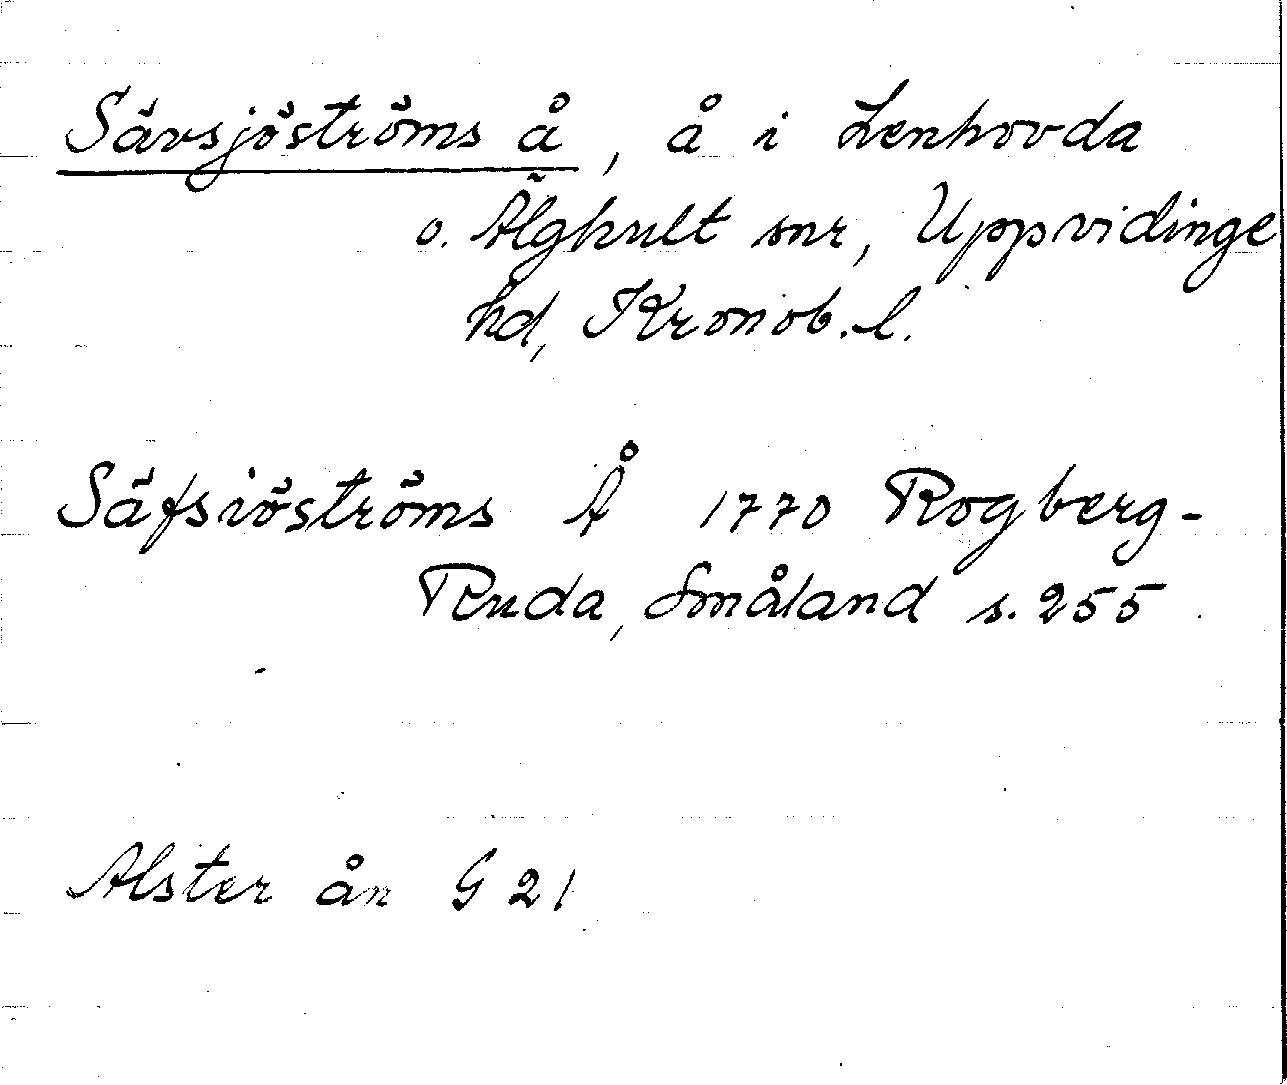 Sävsjöströms å, å i Lenhovda
o. Älghult snr, Uppvidinge
hd, Kronob. l.
Säfsiöströms Å 1770 Rogberg-
Ruda, Småland s. 255
Alster ån G 21